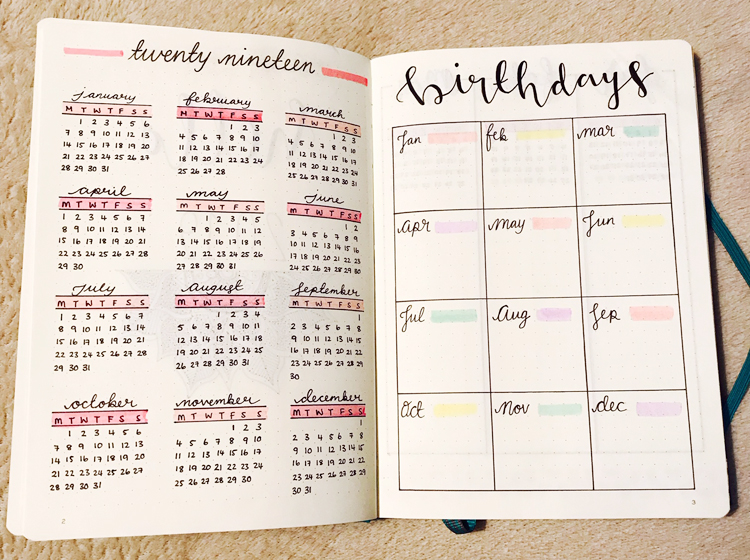 twenty nineteen
january
M T W T F S S
1 2 3 4 5 6
7 8 9 10 11 12 13
14 15 16 17 18 19 20
21 22 23 24 25 26 27
28 29 30 31
february
M T W T F S S
1 2 3
4 5 6 7 8 9 10
11 12 13 14 15 16 17
18 19 20 21 22 23 24
25 26 27 28
march
M T W T F S S
1 2 3
4 5 6 7 8 9 10
11 12 13 14 15 16 17
18 19 20 21 22 23 24
25 26 27 28 29 30 31
april
M T W T F S S
1 2 3 4 5 6 7
8 9 10 11 12 13 14
15 16 17 18 19 20 21
22 23 24 25 26 27 28
29 30
may
M T W T F S S
1 2 3 4 5
6 7 8 9 10 11 12
13 14 15 16 17 18 19
20 21 22 23 24 25 26
27 28 29 30 31
june
M T W T F S S
1 2
3 4 5 6 7 8 9
10 11 12 13 14 15 16
17 18 19 20 21 22 23
24 25 26 27 28 29 30
july
M T W T F S S
1 2 3 4 5 6 7
8 9 10 11 12 13 14
15 16 17 18 19 20 21
22 23 24 25 26 27 28
29 30 31
august
M T W T F S S
1 2 3 4
5 6 7 8 9 10 11
12 13 14 15 16 17 18
19 20 21 22 23 24 25
26 27 28 29 30 31
september
M T W T F S S
1
2 3 4 5 6 7 8
9 10 11 12 13 14 15
16 17 18 19 20 21 22
23 24 25 26 27 28 29
30
october
M T W T F S S
1 2 3 4 5 6
7 8 9 10 11 12 13
14 15 16 17 18 19 20
21 22 23 24 25 26 27
28 29 30 31
november
M T W T F S S
1 2 3
4 5 6 7 8 9 10
11 12 13 14 15 16 17
18 19 20 21 22 23 24
25 26 27 28 29 30
december
M T W T F S S
1
2 3 4 5 6 7 8
9 10 11 12 13 14 15
16 17 18 19 20 21 22
23 24 25 26 27 28 29
30 31
2
birthdays
Jan feb mar
Apr may Jun
Jul Aug Sep
Oct Nov dec
3